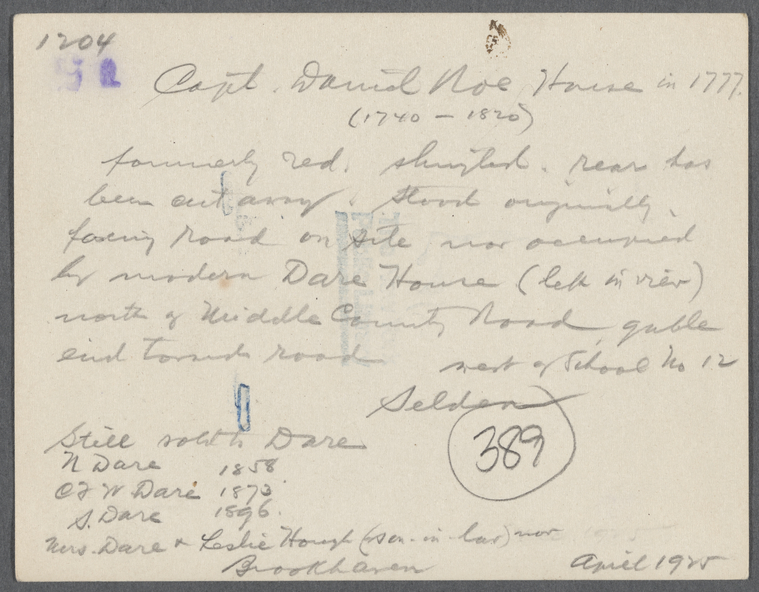 1204
Capt. Daniel Roe House in 1777.
(1740 - 1820)
formerly red. shingled. rear has
been cut away. Stood originally
facing road on site now occupied
by modern Dare House (left in view)
north of Middle Country Road, gable
end towards road west of School No 12
Selden
389
Still Dare
N Dare 1858
C F W. Dare 1873
S. Dare 1896.
Mrs. Dare & Leslie Hough (son-in-law) now
Brookhaven April 1925